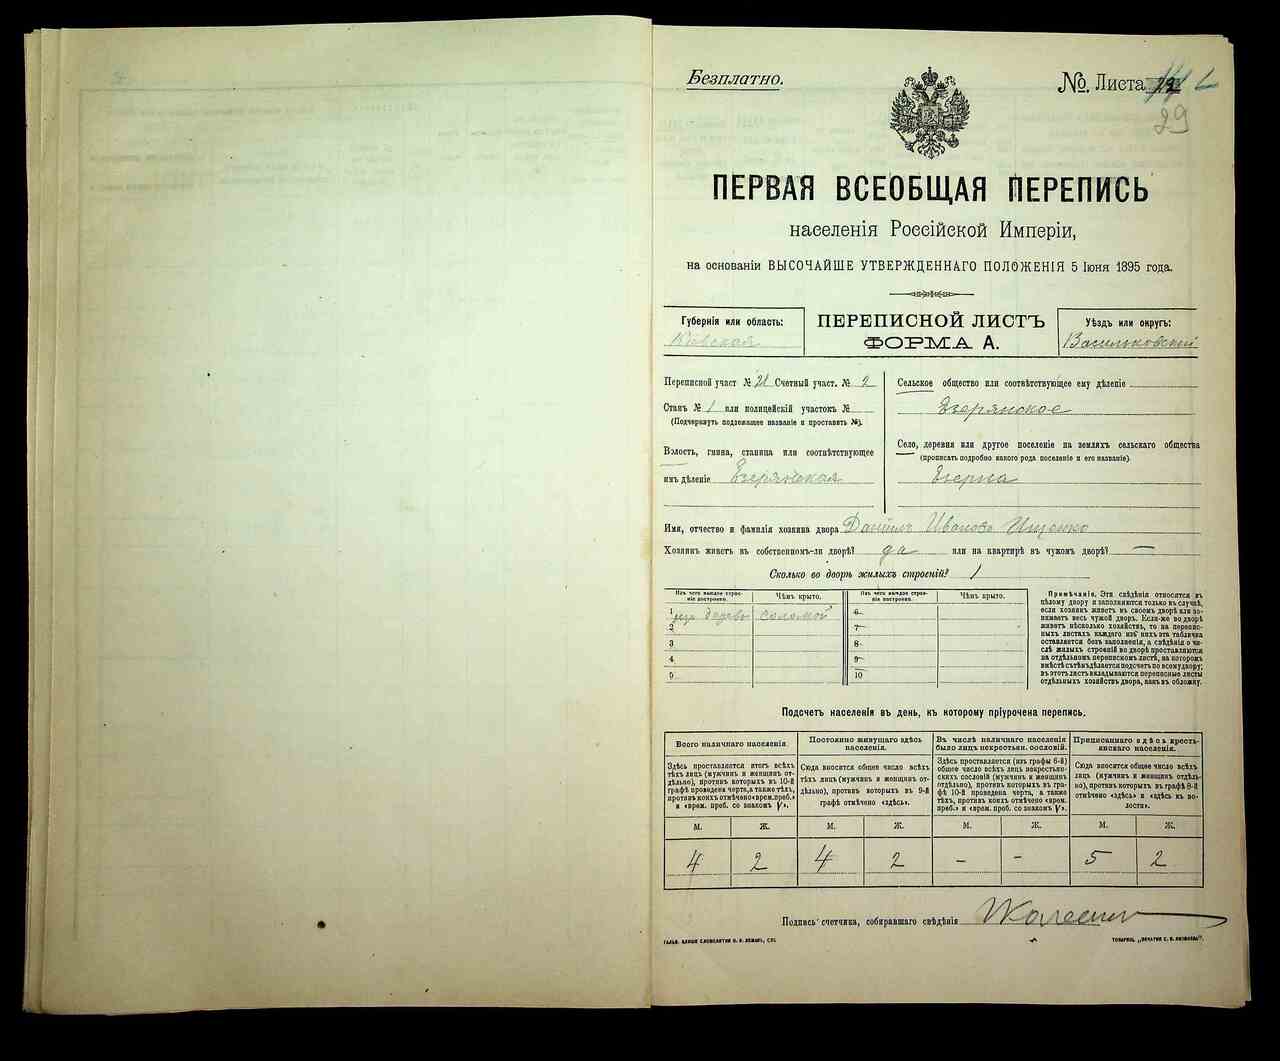 Безплатно.
№. Листа
29
ПЕРВАЯ ВСЕОБЩАЯ ПЕРЕПИСЬ
населенія Россійской Имперіи,
на основаніи ВЫСОЧАЙШЕ УТВЕРЖДЕННАГО ПОЛОЖЕНІЯ 5 Іюня 1895 года.
Губернія или область:
Кіевская
ПЕРЕПИСНОЙ ЛИСТЪ
ФОРМА А.
Уѣздъ или округъ:
Васильковскій
Переписной участ № 21 Счетный участ. № 2
Станъ № 1 или полицейскій участокъ №
(Подчеркнуть подлежащее названіе и проставить №).
Волость, гмина, станица или соотвѣтствующее
имъ дѣленіе Езерянская
Сельское общество или соотвѣтствующее ему дѣленіе
Езерянское
Село, деревня или другое поселеніе на земляхъ сельскаго общества
(прописать подробно какого рода поселеніе и его названіе).
Езерна
Имя, отчество и фамилія хозяина двора Даніилъ Ивановъ Ищенко
Хозяинъ живетъ въ собственномъ-ли дворѣ? да или на квартирѣ въ чужомъ дворѣ? —
Сколько во дворѣ жилыхъ строеній? 1
Изъ чего каждое строе-
ніе построено.
Чѣмъ крыто.
Изъ чего каждое строе-
ніе построено.
Чѣмъ крыто.
1 дерева соломой
2
3
4
5
6
7
8
9
10
Примѣчаніе. Эти свѣдѣнія относятся къ
цѣлому двору и заполняются только въ случаѣ,
если хозяинъ живетъ въ своемъ дворѣ или за-
нимаетъ весь чужой дворъ. Если-же во дворѣ
живетъ нѣсколько хозяйствъ, то на перепис-
ныхъ листахъ каждаго изъ нихъ эта табличка
оставляется безъ заполненія, а свѣдѣнія о чи-
слѣ жилыхъ строеній во дворѣ проставляются
на отдѣльномъ переписномъ листѣ, на которомъ
вмѣстѣ съ тѣмъ дѣлается подсчетъ по всему двору;
въ этотъ листъ вкладываются переписные листы
отдѣльныхъ хозяйствъ двора, какъ въ обложку.
Подсчетъ населенія въ день, къ которому пріурочена перепись.
Всего наличнаго населенія.
Здѣсь проставляется итогъ всѣхъ
тѣхъ лицъ (мужчинъ и женщинъ от-
дѣльно), противъ которыхъ въ 10-й
графѣ проведена черта, а также тѣхъ,
противъ коихъ отмѣчено «врем. преб.»
и «врем. преб. со знакомъ V».
Постоянно живущаго здѣсь
населенія.
Сюда вносится общее число всѣхъ
тѣхъ лицъ (мужчинъ и женщинъ от-
дѣльно), противъ которыхъ въ 9-й
графѣ отмѣчено «здѣсь».
Въ числѣ наличнаго населенія
было лицъ некрестьян. сословій.
Здѣсь проставляется (изъ графы 6-й)
общее число всѣхъ лицъ некрестьян-
скихъ сословій (мужчинъ и женщинъ
отдѣльно), противъ которыхъ въ гра-
фѣ 10-й проведена черта, а также
тѣхъ, противъ коихъ отмѣчено «врем.
преб.» и «врем. преб. со знакомъ V».
Приписаннаго здѣсь кресть-
янскаго населенія.
Сюда вносится общее число всѣхъ
лицъ (мужчинъ и женщинъ отдѣль-
но), противъ которыхъ въ графѣ 8-й
отмѣчено «здѣсь» и «здѣсь въ во-
лости».
М. Ж. М. Ж. М. Ж. М. Ж.
4 2 4 2 - - 5 2
Подпись счетчика, собиравшаго свѣдѣнія